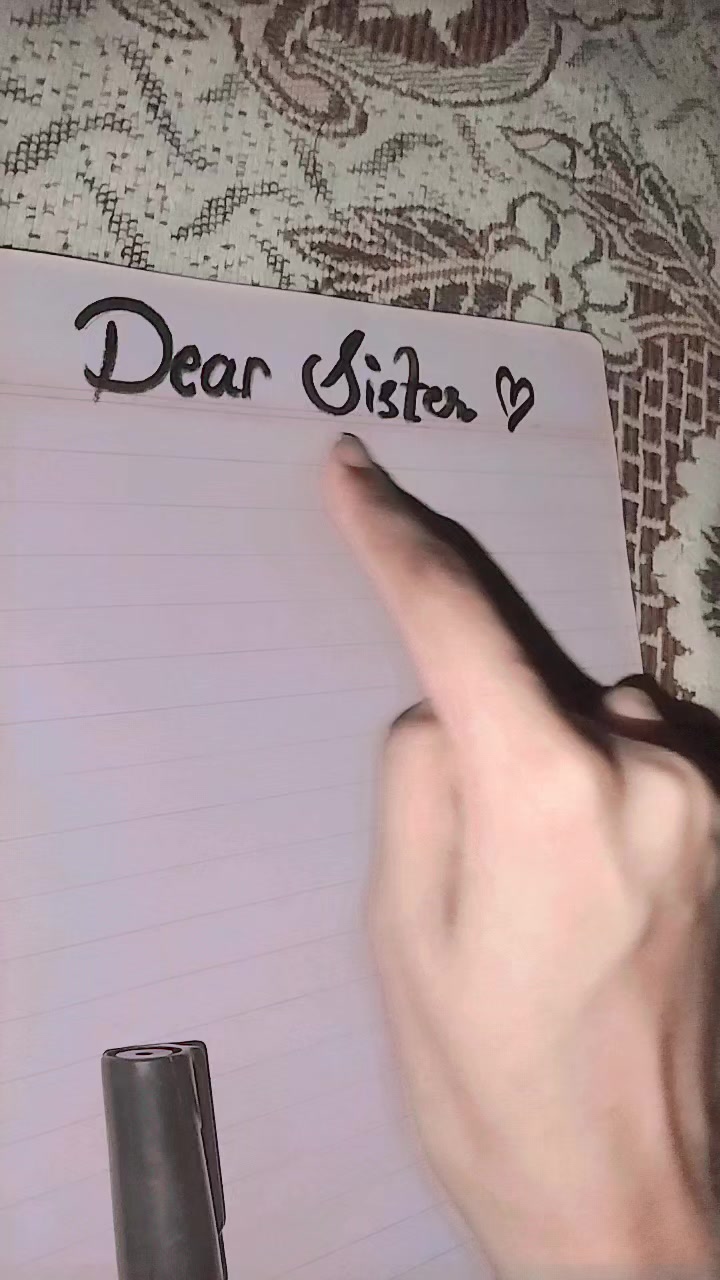 Dear Sister ♡